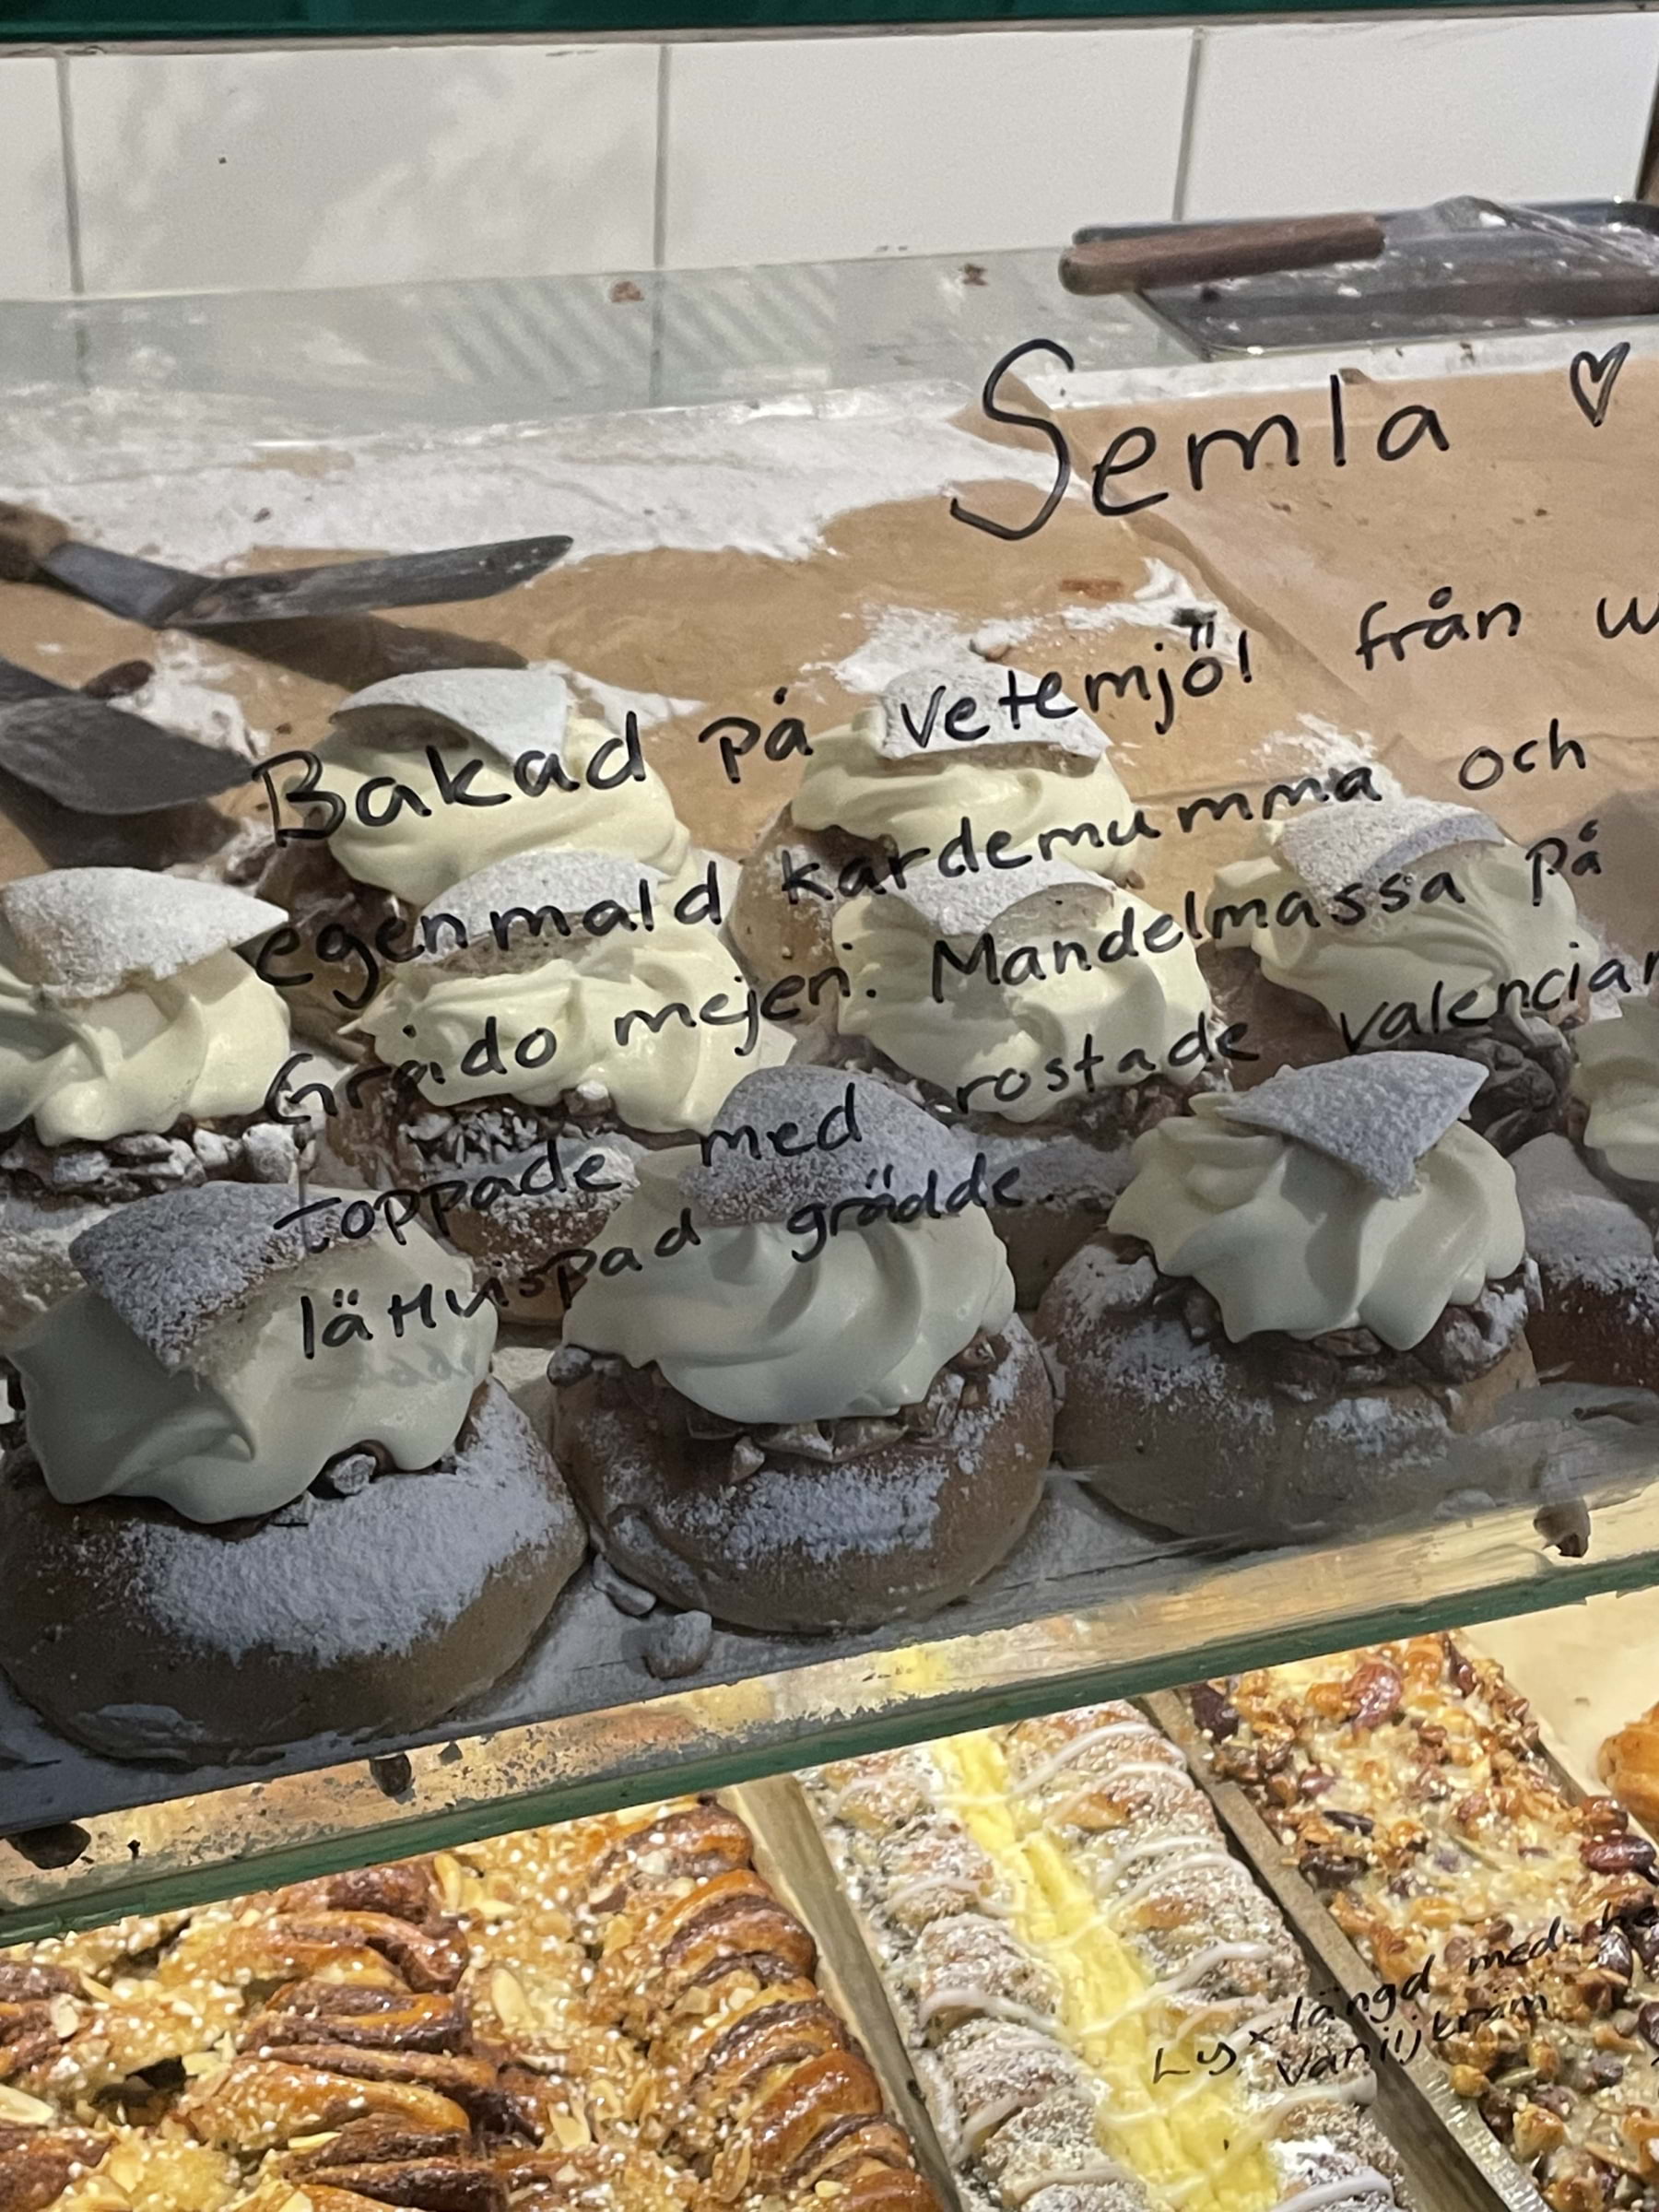 Semla ♡
Bakad på vetemjöl från
egenmald kardemumma och
Gräddo mejeri. Mandelmassa på
toppade med rostade
lättvispad grädde.
Lyx längd med
vaniljkräm